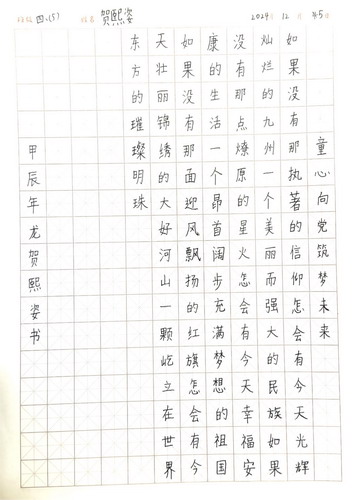 班级 四、(5) 姓名 贺熙姿 2024年 12月
童心向党筑梦未来
如果没有那执著的信仰怎会有今天光辉
灿烂的九州一个美丽而强大的民族如果
没有那点燎原的星火怎会有今天幸福安
康的生活一个昂首阔步充满梦想的祖国
如果没有那面迎风飘扬的红旗怎会有今
天壮丽锦绣的大好河山一颗屹立在世界
东方的璀璨明珠
甲辰年龙贺熙姿书